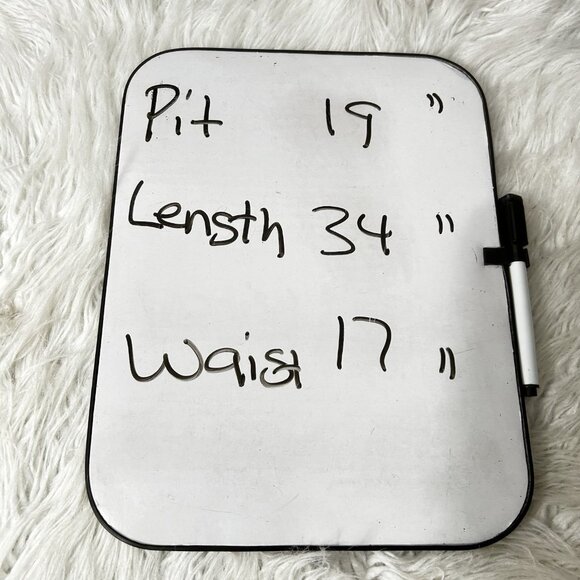 Pit 19 "
Length 34 "
Waist 17 "